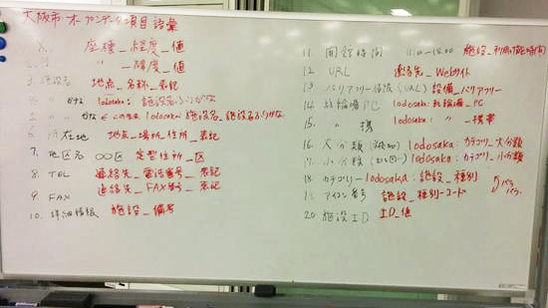 大阪市オープンデータ項目語彙
X. 座標_経度_値
Y. 〃_緯度_値
3. 施設名 地点_名称_表記
4. 〃 かな lodosaka:施設名ふりがな
5. 〃 かな lodosaka:施設名_施設名ふりがな
6. 所在地 地点_場所_住所_表記
7. 地区名 〇〇区 定型住所_区
8. TEL 連絡先_電話番号_表記
9. FAX 連絡先_FAX番号_表記
10. 詳細情報 施設_備考
11. 開館時間 施設_利用可能時間
12. URL 連絡先_Webサイト
13. バリアフリー情報 (URL) 設備_バリアフリー
14. 駐輪場PC lodosaka:駐輪場_PC
15. 〃 携 lodosaka: 〃 _携帯
16. 大分類 lodosaka:カテゴリ_大分類
17. 小分類 lodosaka:カテゴリ_小分類
18. カテゴリー lodosaka:施設_種別
19. アイコン番号 施設_種別コード
20. 施設ID ID_値